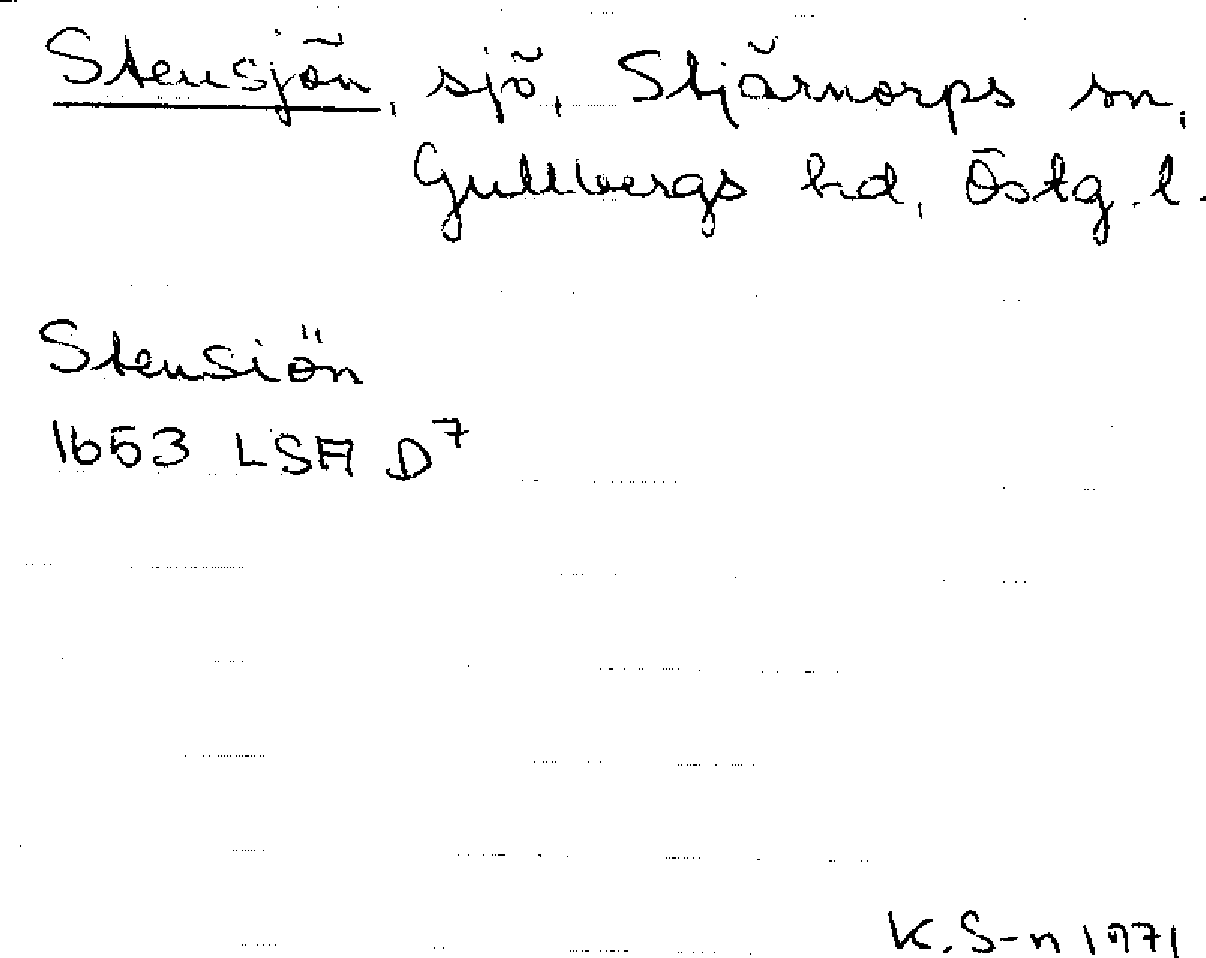 Stensjön, sjö, Stjärnorps sn,
Gullbergs hd, Östg. l.
Stensiön
1653 LSA D7
K. S-n 1971